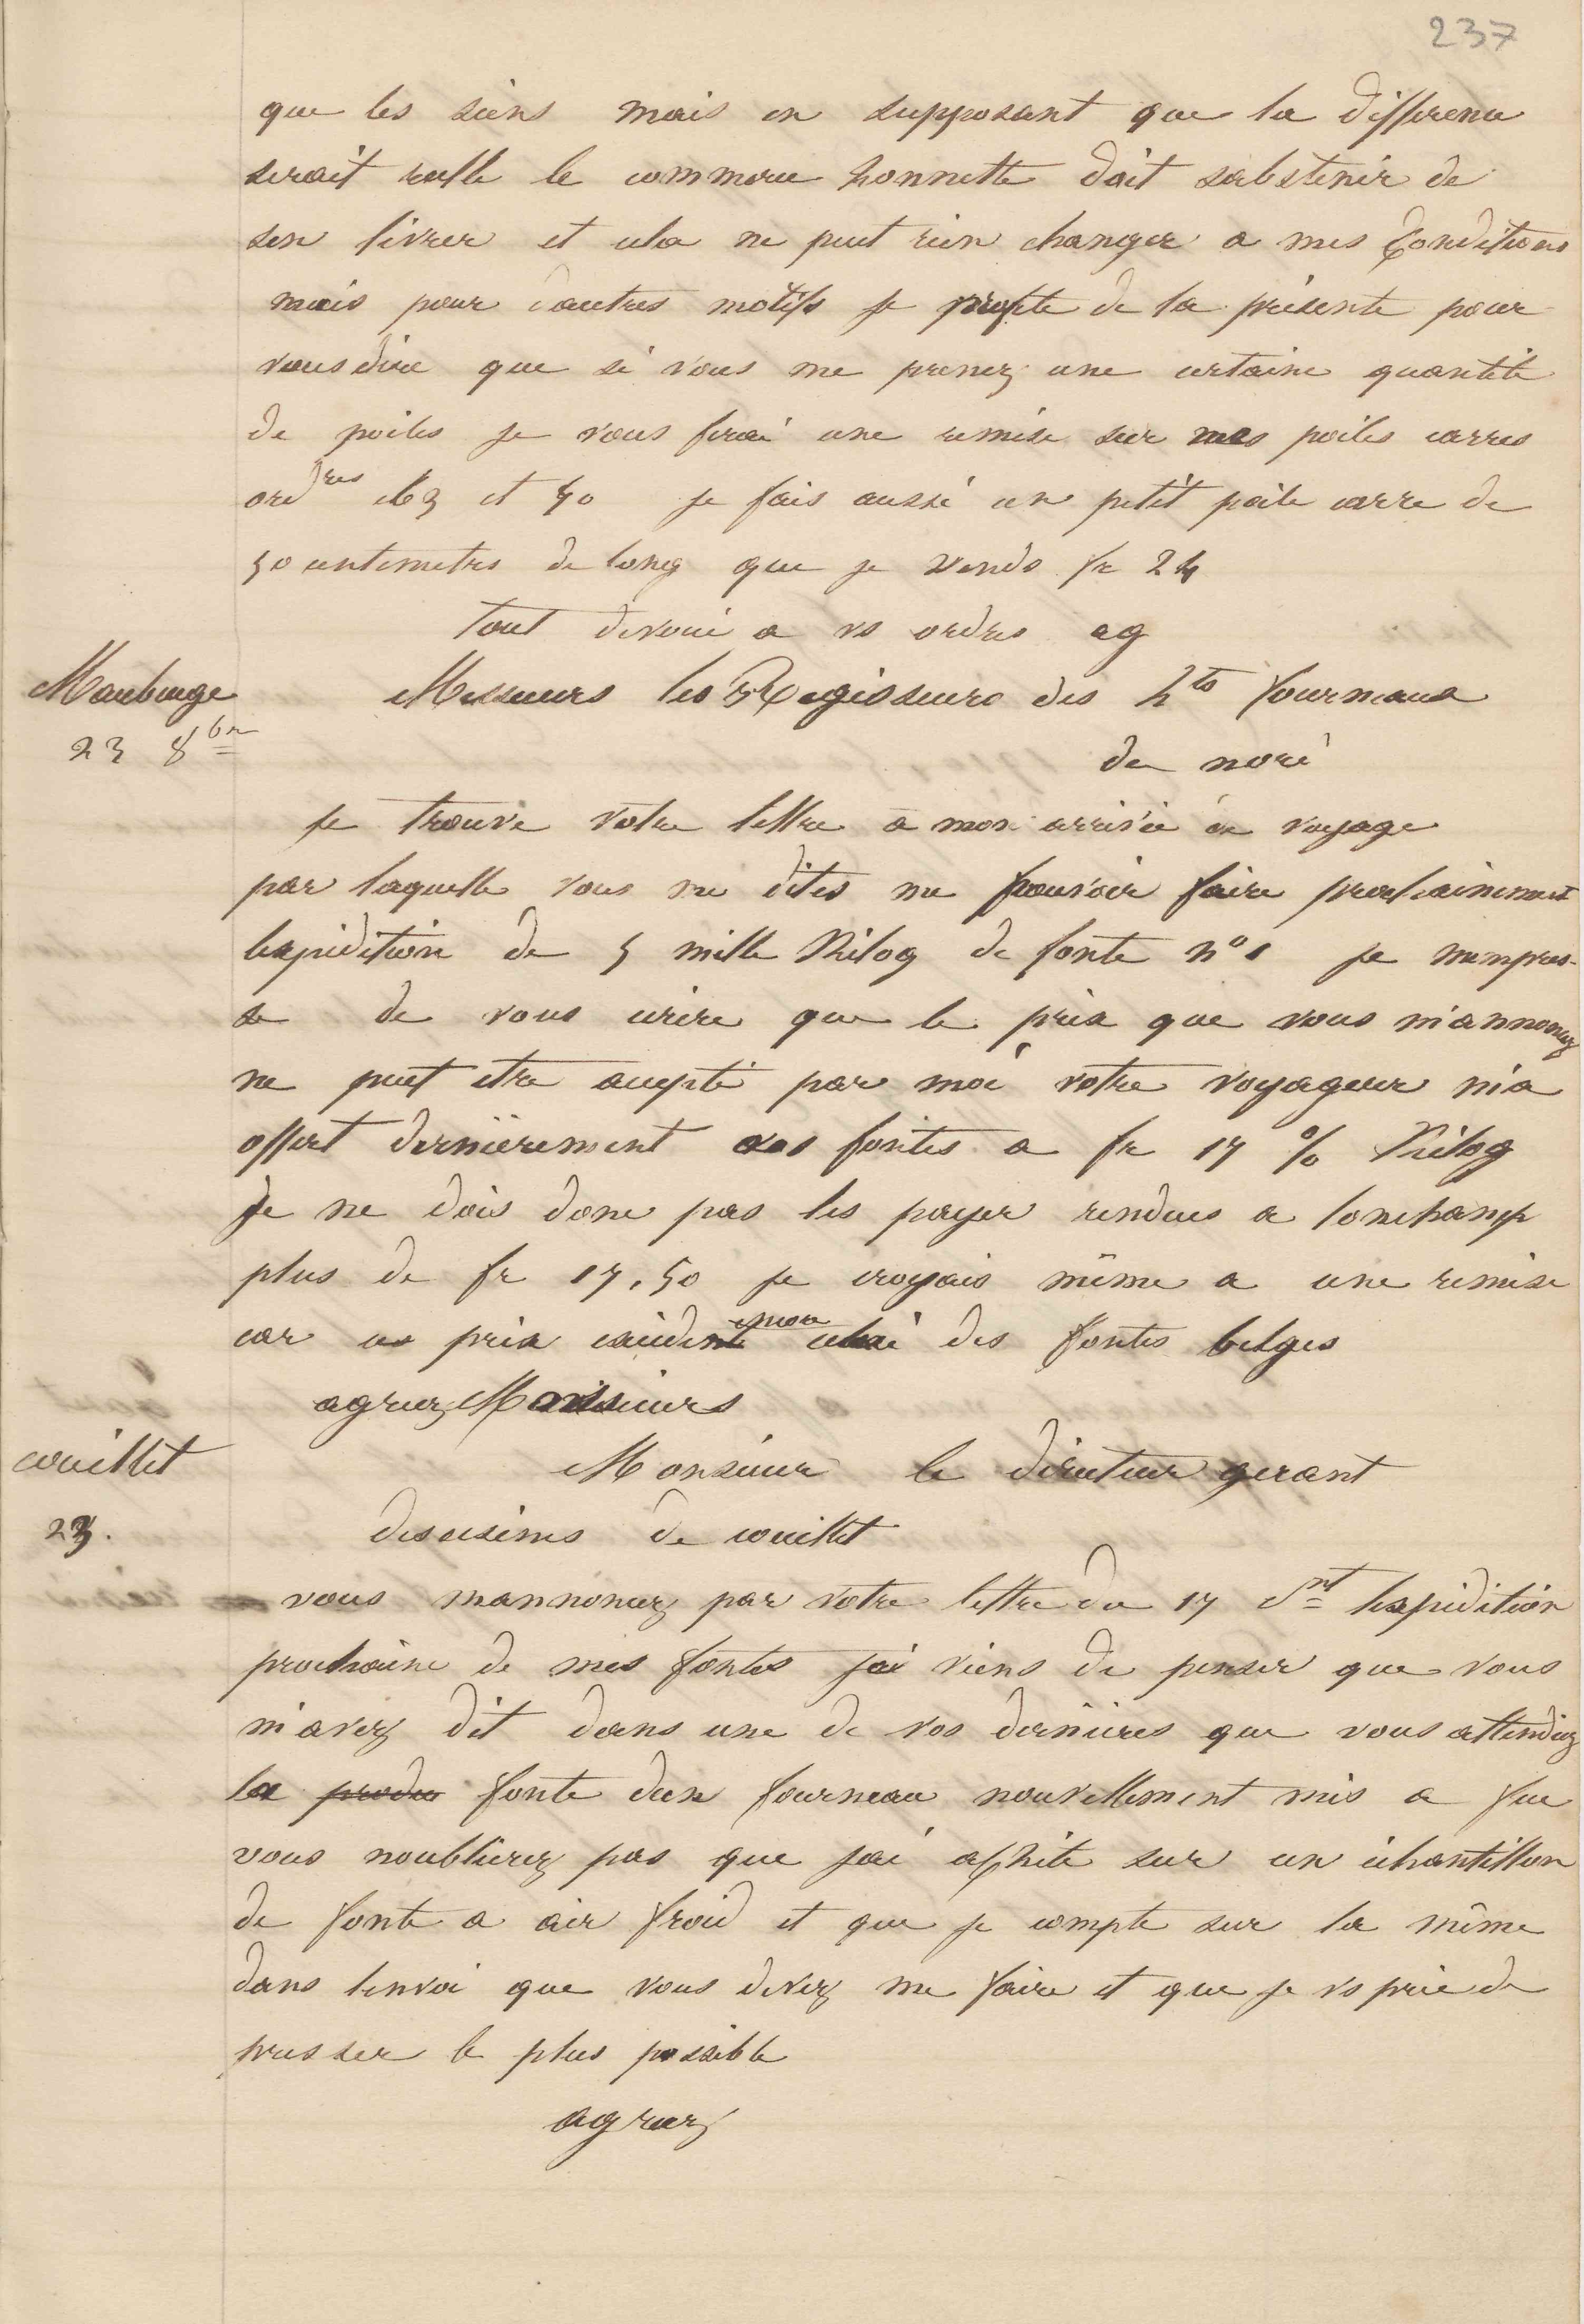 237
que les siens mais en supposant que la difference
serait reelle le commerce honnette doit sabstenir de
sen livrer et cela ne peut rien changer a mes Conditions
mais pour dautres motifs je profite de la présente pour
vous dire que si vous me prenez une certaine quantité
de poiles je vous ferai une remise sur mes poiles carres
ordres et 50 je fais aussi un petit poile carre de
50 centimetres de long que je vends fr 24
tout devoué a vs ordres ag
Maubeuge
23 8bre
Messieurs les Regisseurs des hts fourneaux
du nord
je trouve votre lettre a mon arrivée de voyage
par laquelle vous me dites me pouvoir faire prochainement
lexpidition de 5 mille Kilog de fonte n° 1 je mempres-
se de vous ecrire que le prix que vous m'annoncez
ne peut etre accepté par moi votre voyageur m'a
offert dernièrement vos fontes a fr 17 % Kilog
Je ne dois donc pas les payer rendues a lonchamp
plus de fr 17,50 je croyais même a une remise
car ce prix excident encor celui des fontes belges
agreez Messieurs
couillet
23.
Monsieur le directeur gerant
des usines de couillet
vous mannoncez par votre lettre du 17 ct lexpidition
prochaine de mes fontes je viens de penser que vous
m'avez dit dans une de vos dernières que vous attendiez
la produ fonte dun fourneau nouvellement mis a feu
vous noublierez pas que jai achité sur un échantillon
de fonte a air froid et que je compte sur la même
dans lenvoi que vous devez me faire et que je vs prie de
presser le plus possible
agreez